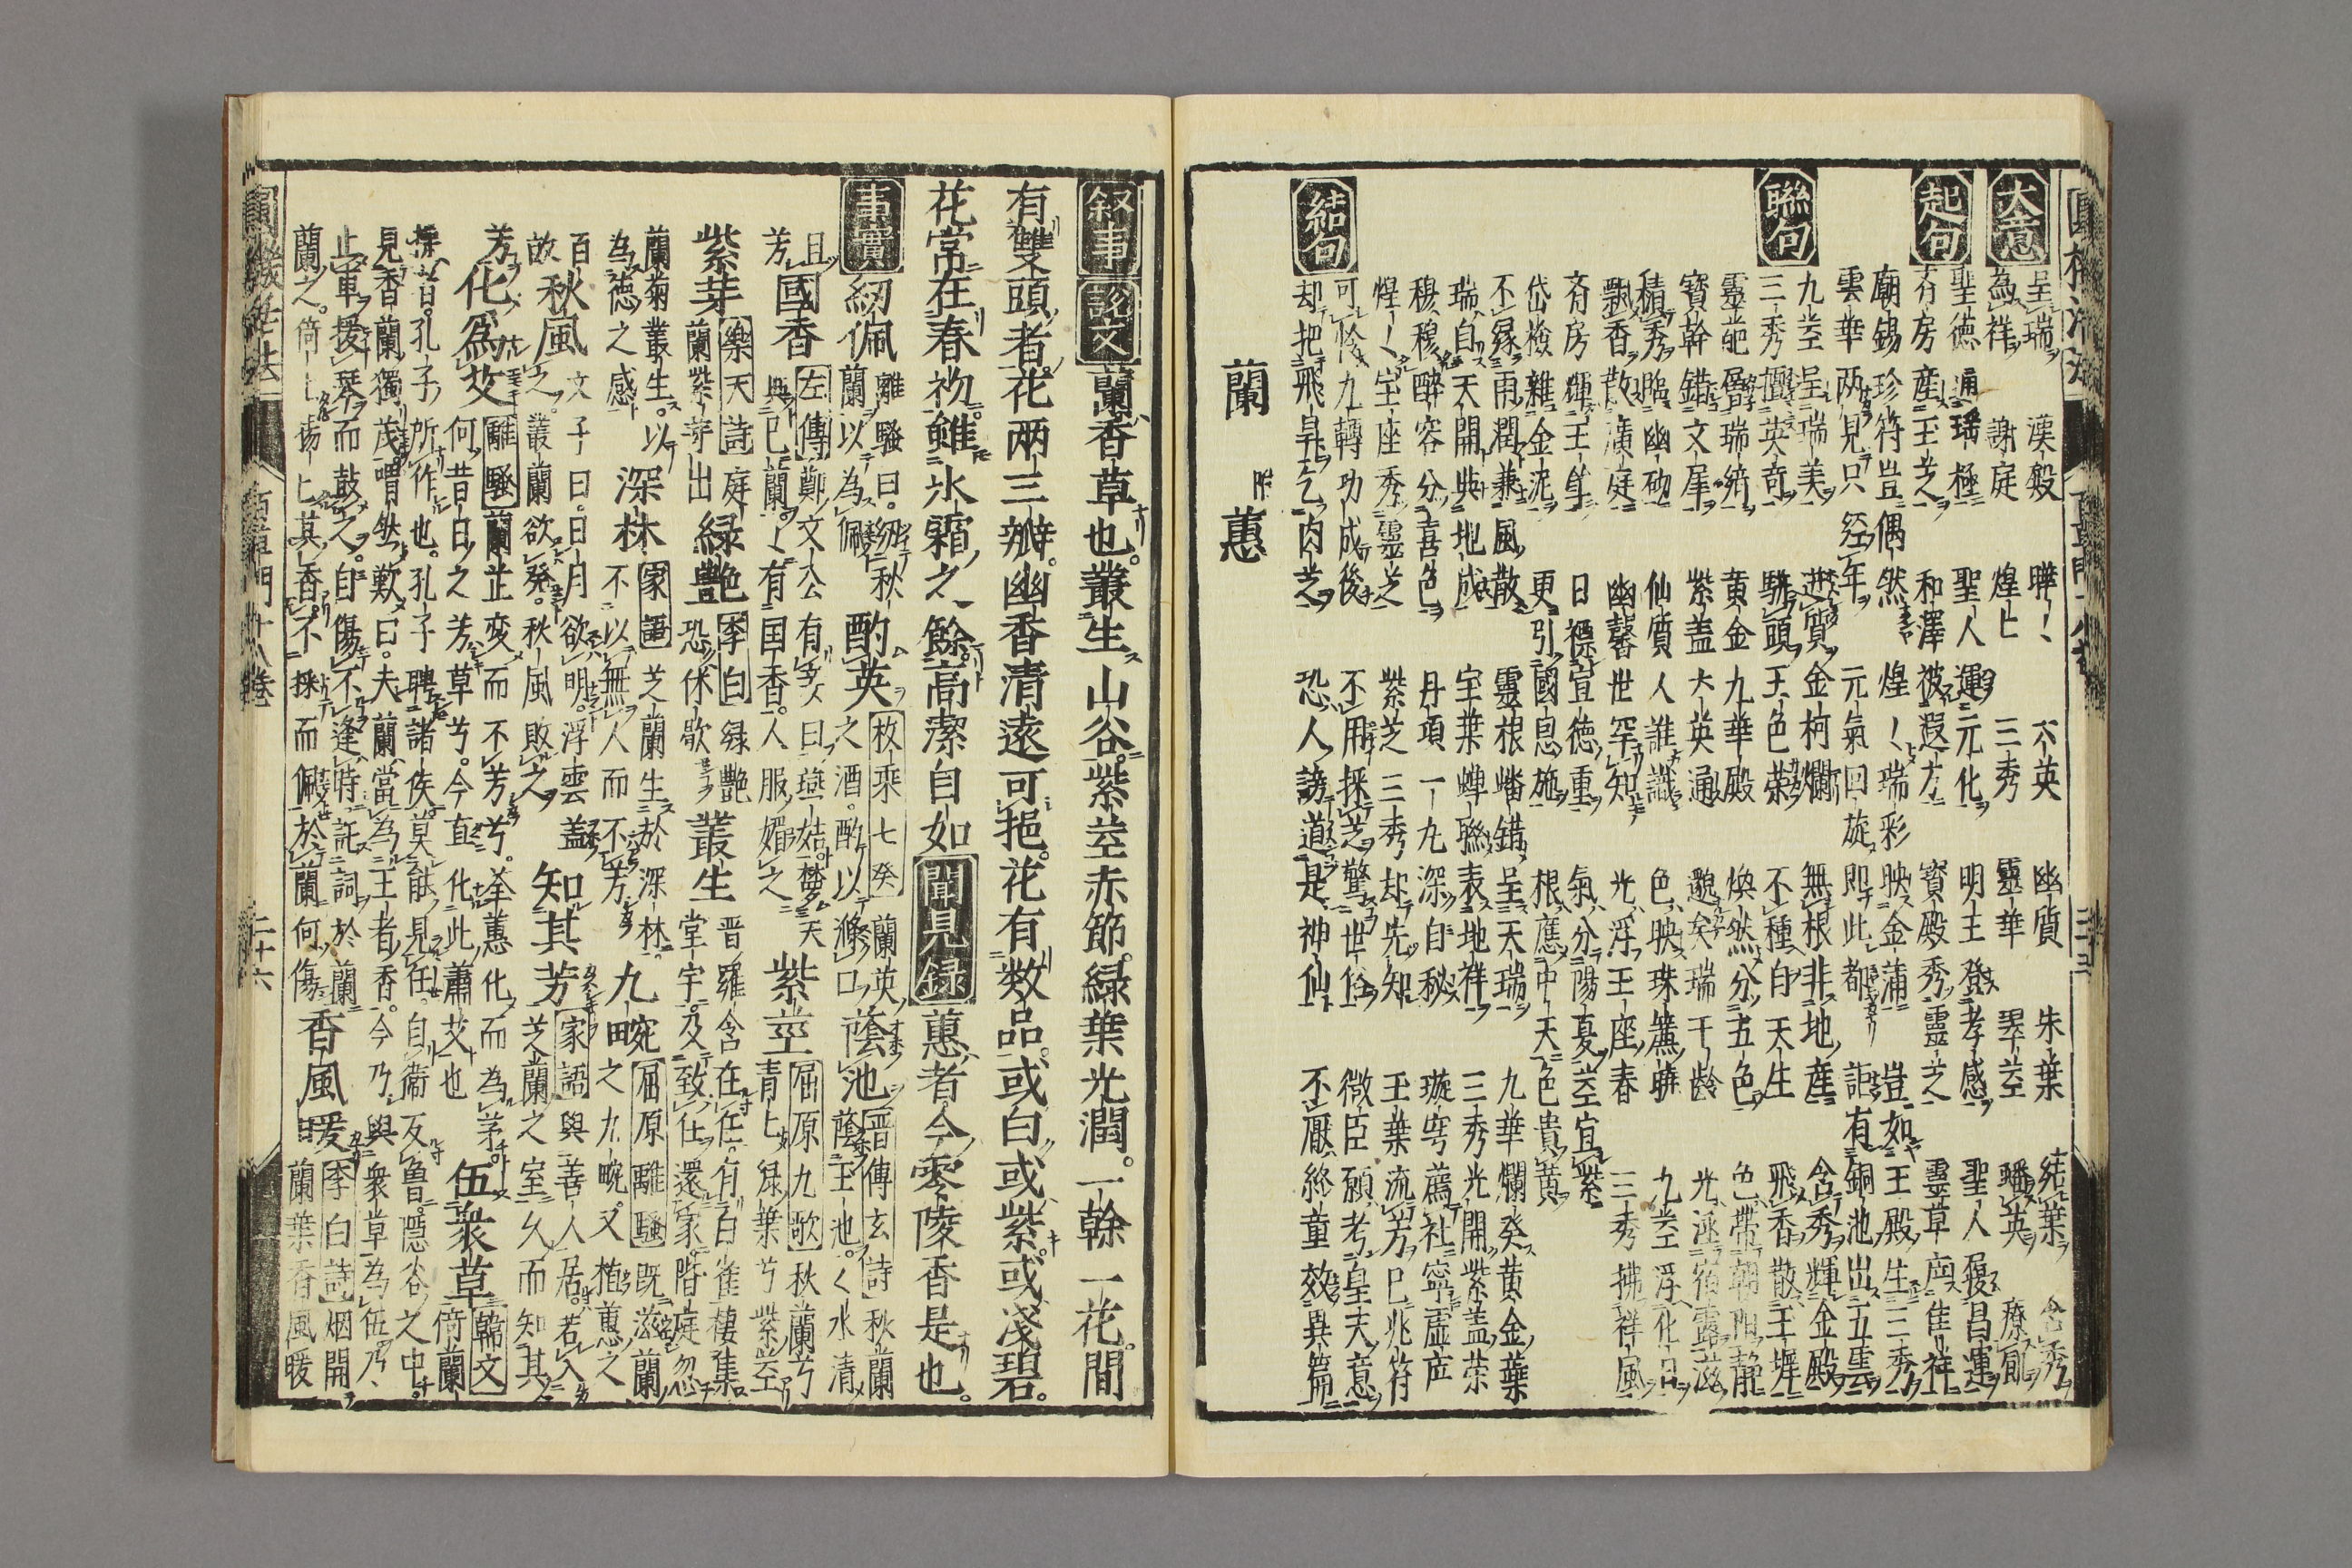 大意
呈瑞 漢殿 曄〻 六英 幽質 朱葉 含秀
為祥 謝庭 煌〻 三秀 靈華 翠莖 療飢
起句
聖德通瑤極 聖人運元化 明王登孝感 聖人履昌運
齋房產玉芝 和澤被遐方 寶殿秀靈芝 靈草産佳祥
廟錫珍符豈偶然 煌〻瑞彩映金蒲 豈如玉殿生三秀
雲華兩見只經年 元氣回旋即此都 詎有銅池出五雲
聯句
九莖呈瑞美 金柯爛 無根非地產 含秀輝金殿
三秀擅英奇 玉色榮 不種白天生 飛香散玉墀
靈葩層瑞 黃金九華殿 煥然分五色 色帶朝陽靜
寶幹錯文犀 紫蓋大英通 邈矣瑞千齡 光涵宿露滋
積秀臨幽砌 仙質人誰識 色映珠簾曉 九莖浮化日
飄香散廣庭 幽馨世罕知 光浮玉座春 三秀拂祥風
齋房輝玉 日 宜德重 氣分陽夏莖宜紫
岱檢雜金泥 更引國息施 根應中天色貴黃
不緣雨潤兼風散 靈根 錯呈天瑞 九華爛發黃金葉
瑞自天開與地成 宝葉蟬聯表地祥 三秀光開紫蓋榮
穆穆醉容分喜色 丹項一九深自秘 璇 薦社寧虛
煌〻宝座秀靈芝 紫芝三秀却先知 玉葉流芳已兆符
結句
可怜九轉功成後 不用採芝驚世俗 微臣願考皇天意
却把飛昇乞肉芝 恐人謗道是神仙 不厭終童效異篇
蘭 附 蕙
叙事 說文 蘭香草也。叢生山谷。紫莖赤節。綠葉光潤。一幹一花。間
有雙頭者。花兩三瓣。幽香清遠可挹。花有数品。或白或紫。或淺碧。
花常在春初。雖氷霜之餘。高潔自如 聞見録 蕙者。今零陵香是也。
事實
紉佩 離騷曰。紉秋蘭以為佩 酌英 枚乘七發 蘭英之酒。酌以滌口 蔭池 晋傅玄詩 秋蘭蔭玉池。〻水清
且芳 國香 左傳 鄭文公有妾曰燕姞。夢天與己蘭。〻有国香。人服媚之 紫莖 屈原九歌 秋蘭兮青〻綠葉兮紫莖
紫芽 樂天詩 庭蘭紫芽出 緑艷 李白 恐休歇 緑艷 叢生 晋羅含在任。有白雀棲集堂宇。及致仕還家。階庭忽
蘭菊叢生。以為德之感 深林 家語 芝蘭生於深林。不以無人而不芳 九畹 屈原離騷 既滋蘭之九畹。又植蕙之
百 秋風 文子曰。日月欲明。浮雲蓋之。叢蘭欲發。秋風敗之 知其芳 家語 與善人居。若入芝蘭之室。久而知其
芳 化為艾 離騷 蘭芷変而不芳兮。荃蕙化而為茅。何昔日之芳草兮。今直化此蕭艾也 伍衆草 韓文 倚蘭
操昔。孔子所作也。孔子聘諸侯。莫能見任。自衛反魯。隱谷之中。
見香蘭獨茂。喟然歎曰。夫蘭當為王者香。今乃與衆草為伍。乃
止車。援琴而鼓之。自傷不逢時。託詞於蘭 香風暖 李白詩 烟開蘭葉香風暖
蘭之。倚〻揚〻其香。不採而佩。於蘭何傷
圓機活法 百草門十八卷 二十六